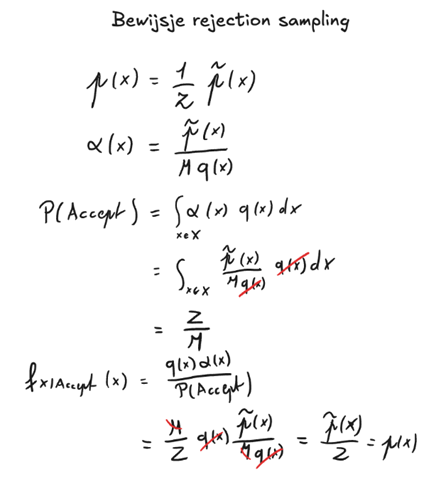 Bewijsje rejection sampling
p(x) = 1/Z p̃(x)
α(x) = p̃(x) / M q(x)
P(Accept) = ∫_{x∈X} α(x) q(x) dx
= ∫_{x∈X} p̃(x) / M q(x) q(x) dx
= Z/M
f_{X|Accept}(x) = q(x) α(x) / P(Accept)
= M/Z q(x) p̃(x) / M q(x) = p̃(x) / Z = p(x)